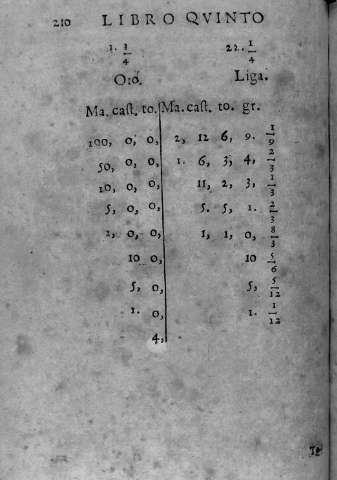 210 LIBRO QVINTO
1. 3/4 22. 1/4
Oro. Liga.
Ma. cast. to. Ma. cast. to. gr.
100, 0, 0, 2, 12 6, 9. 1/9
50, 0, 0, 1. 6, 3, 4, 2/3
20, 0, 0, 11, 2, 3, 1/3
5, 0, 0, 5. 5, 1. 2/3
1, 0, 0, 1, 1, 0, 8/3
10 0, 10 5/6
5, 0, 5, 5/12
1. 0, 1. 1/12
4,